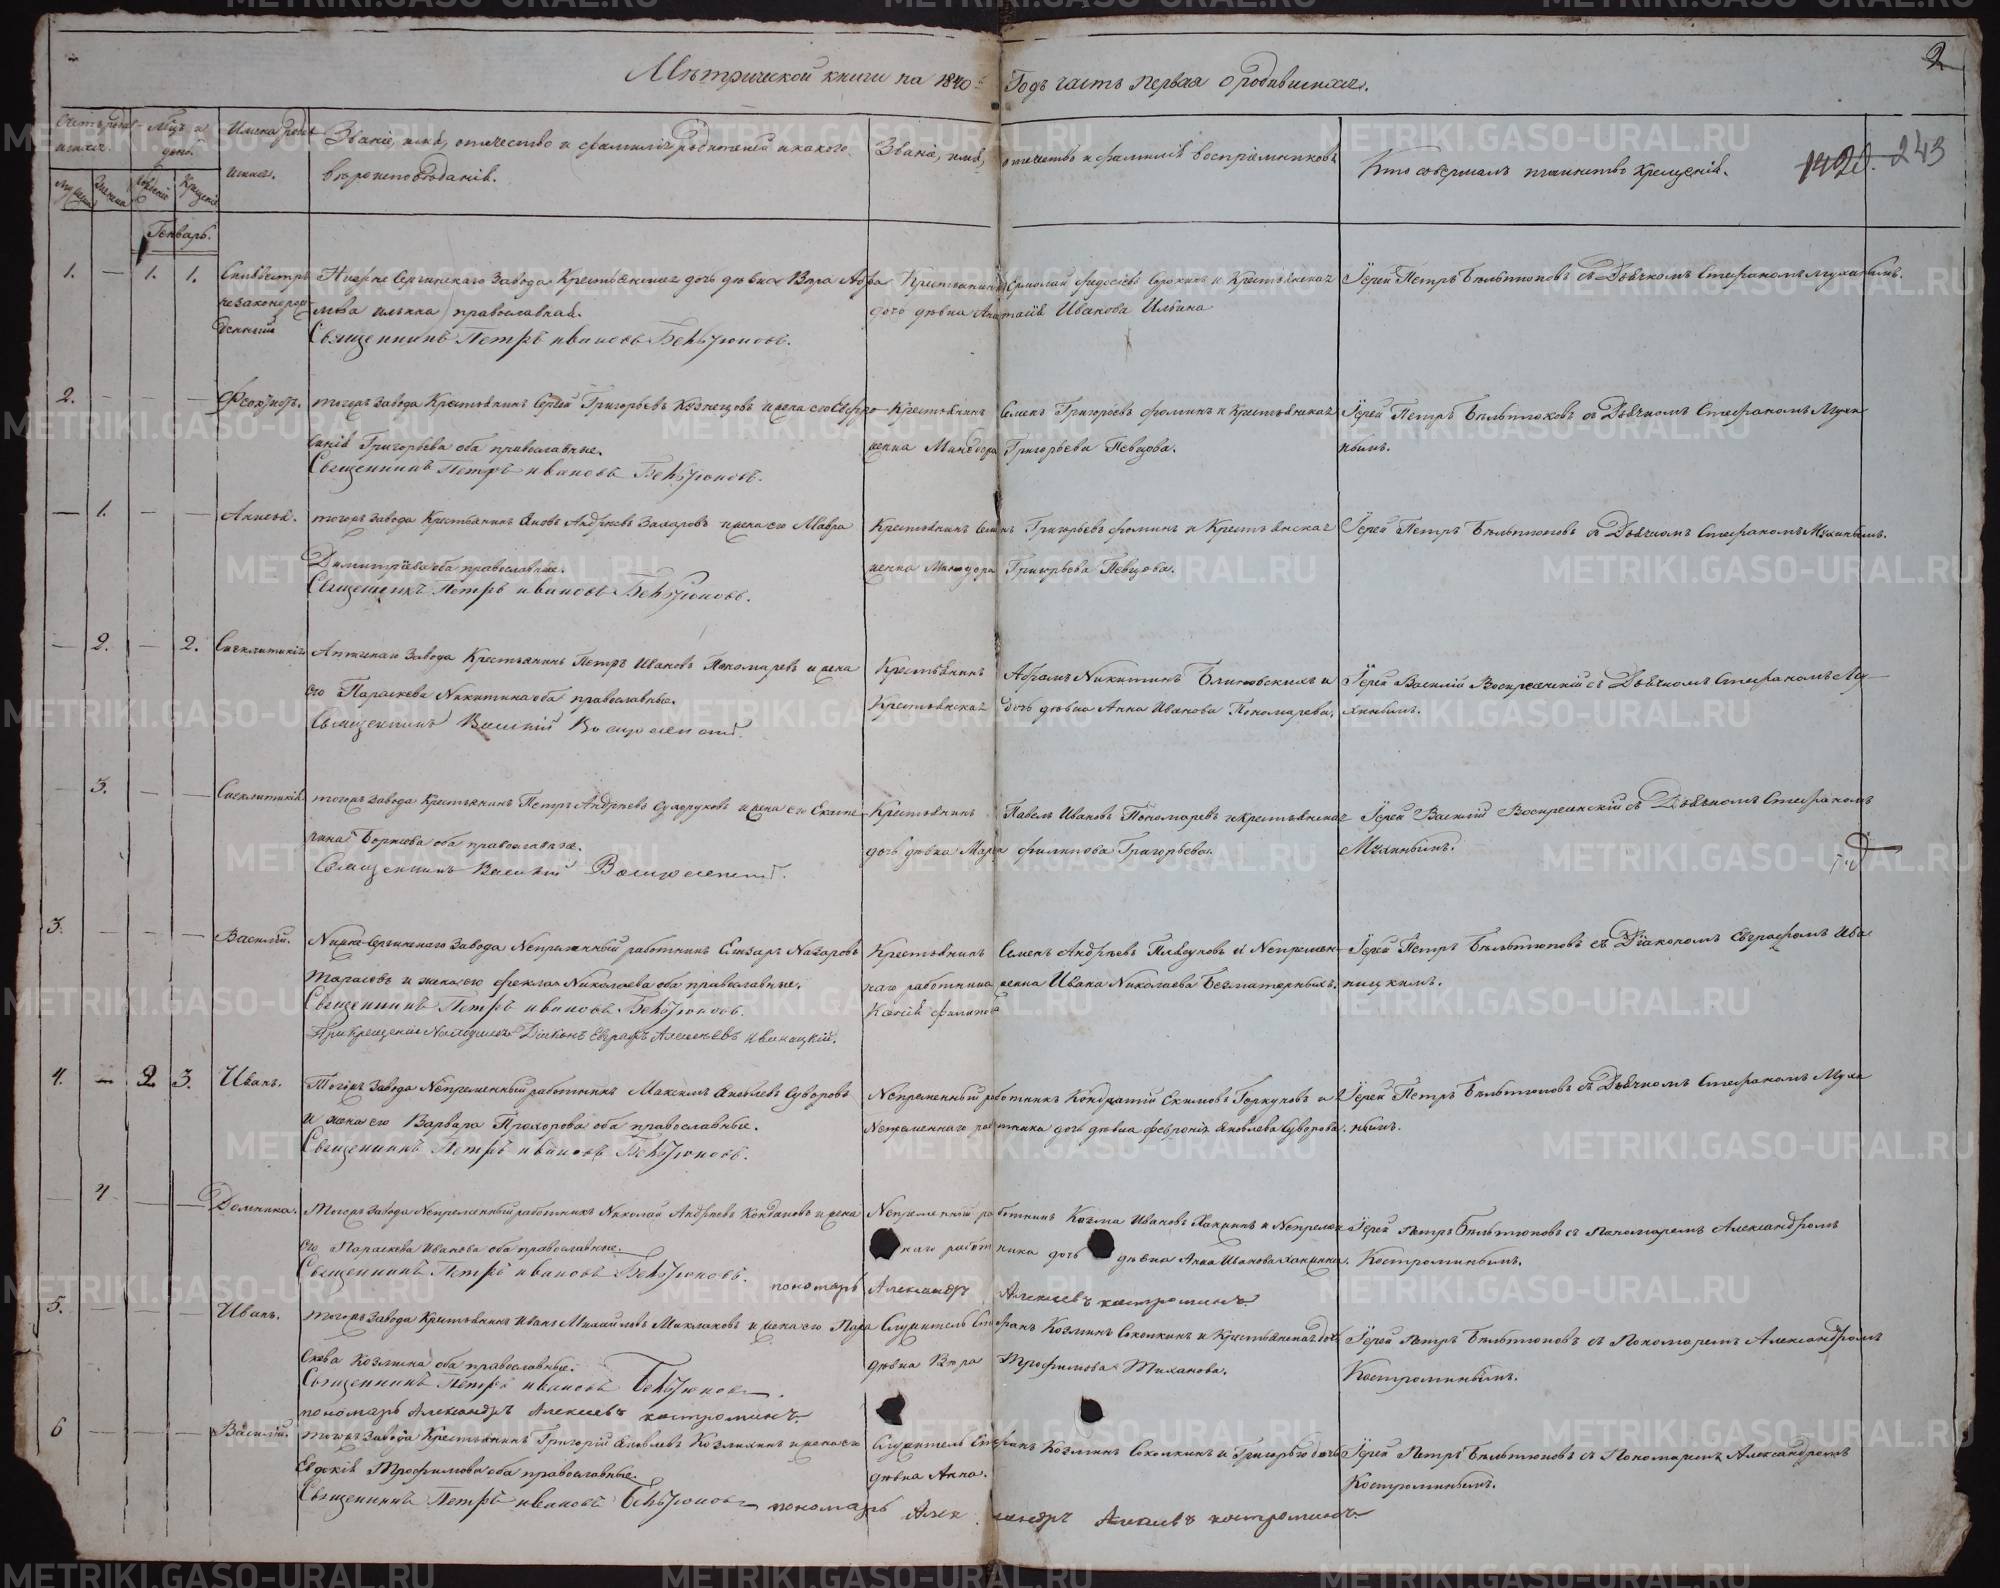 Метрической книги на 1840й Годъ часть первая о родившихся.
2
243
Счетъ родившихся.
Мѣсяцъ и день.
Имена родившихся.
Званіе, имя, отечество и фамилія родителей и какого
вѣроисповѣданія.
Званіе, имя, отечество и фамилія воспріемниковъ
Кто совершалъ таинство крещенія.
Генварь.
1. — 1. 1.
Силивестръ незаконорожденный
Нижне Сергинскаго Завода Крестьянская дочь дѣвка Вѣра Абрамова Ильина православная.
Священникъ Петръ Ивановъ Бѣльтюковъ.
Крестьянинъ Ермолай Федосѣевъ Сорокинъ и Крестьянская
дочь дѣвка Анастасія Иванова Ильина
Іерей Петръ Бѣльтюковъ съ Дьячкомъ Стефаномъ Мухинымъ.
2. — — —
Феоктистъ.
тогожъ завода Крестьянинъ Сергей Григорьевъ Кузнецовъ и жена его Евфросинія Григорьева оба православные.
Священникъ Петръ Ивановъ Бѣльтюковъ.
Крестьянинъ Семенъ Григорьевъ Фоминъ и Крестьянская
женка Минодора Григорьева Певцова.
Іерей Петръ Бѣльтюковъ съ Дьячкомъ Стефаномъ Мухинымъ.
— 1. — —
тогожъ завода Крестьянинъ Яковъ Андреевъ Захаровъ и жена его Мавра
Димитріева оба православные.
Священникъ Петръ Ивановъ Бѣльтюковъ.
Крестьянинъ Семенъ Григорьевъ Фоминъ и Крестьянская
женка Минодора Григорьева Певцова.
Іерей Петръ Бѣльтюковъ съ Дьячкомъ Стефаномъ Мухинымъ.
— 2. — 2.
Сигклитикія
Атигскаго Завода Крестьянинъ Петръ Ивановъ Пономаревъ и жена
его Параскева Никитина оба православные.
Священникъ Василій Воскресенскій.
Крестьянинъ Абрамъ Никитинъ Блиновскихъ и
Крестьянская дочь дѣвка Анна Иванова Пономарева.
Іерей Василій Воскресенскій съ Дьячкомъ Стефаномъ Мухинымъ.
3. — —
Сигклитикія.
тогожъ завода Крестьянинъ Петръ Андреевъ Сухоруковъ и жена его Екатерина
оба православные.
Священникъ Василій Воскресенскій.
Крестьянинъ Павелъ Ивановъ Пономаревъ и крестьянская
дочь дѣвка Марѳа Филипова Григорьева.
Іерей Василій Воскресенскій съ Дьячкомъ Стефаномъ
Мухинымъ.
3. — — —
Василій.
Нижне-Сергинскаго Завода Непременный работникъ Елизаръ Назаровъ
Тарасовъ и жена его Фекла Николаева оба православные.
Священникъ Петръ Ивановъ Бѣльтюковъ.
При крещеніи находился Діаконъ Евграфъ Алексѣевъ Иваницкій.
Крестьянинъ Семенъ Андреевъ и Непременнаго работника женка Ивана Николаева Безматерныхъ
Ксенія Филипова
Іерей Петръ Бѣльтюковъ съ Діакономъ Евграфомъ Иваницкимъ.
4. — 2. 3.
Иванъ.
Тогожъ Завода Непременный работникъ Максимъ Яковлевъ Суворовъ
и жена его Варвара Прохорова оба православные.
Священникъ Петръ Ивановъ Бѣльтюковъ.
Непременный работникъ Кондратій Екимовъ Горкуновъ и
Непременнаго работника дочь дѣвка Февронія Яковлева Суворова.
Іерей Петръ Бѣльтюковъ съ Дьячкомъ Стефаномъ Мухинымъ.
— 4 — —
Домника.
Тогожъ Завода Непременный работникъ Николай Андреевъ Кондаковъ и жена
его Параскева Иванова оба православные.
Священникъ Петръ Ивановъ Бѣльтюковъ. пономарь Александръ Алексеевъ костроминъ.
Непременный работникъ Козма Ивановъ и Непременнаго работника дочь дѣвка Анна Иванова
Іерей Петръ Бѣльтюковъ съ Пономаремъ Александромъ
Костроминымъ.
5. — — —
Иванъ.
тогожъ Завода Крестьянинъ Иванъ Михайловъ Миклаковъ и жена его Параскева Козмина оба православные.
Священникъ Петръ Ивановъ Бѣльтюковъ.
пономарь Александръ Алексеевъ костроминъ.
Служитель Стефанъ Козминъ Соколкинъ и Крестьянская дочь
дѣвка Вѣра Трофимова Тиханова.
Іерей Петръ Бѣльтюковъ съ Пономаремъ Александромъ
Костроминымъ.
6 — — —
Василій.
тогожъ Завода Крестьянинъ Григорій Яковлевъ Козминъ и жена его
Евдокія Трофимова оба православные.
Священникъ Петръ Ивановъ Бѣльтюковъ пономарь Александръ Алексеевъ костроминъ.
Служитель Стефанъ Козминъ Соколкинъ и дочь
дѣвка Анна.
Іерей Петръ Бѣльтюковъ съ Пономаремъ Александромъ
Костроминымъ.
METRIKI.GASO-URAL.RU